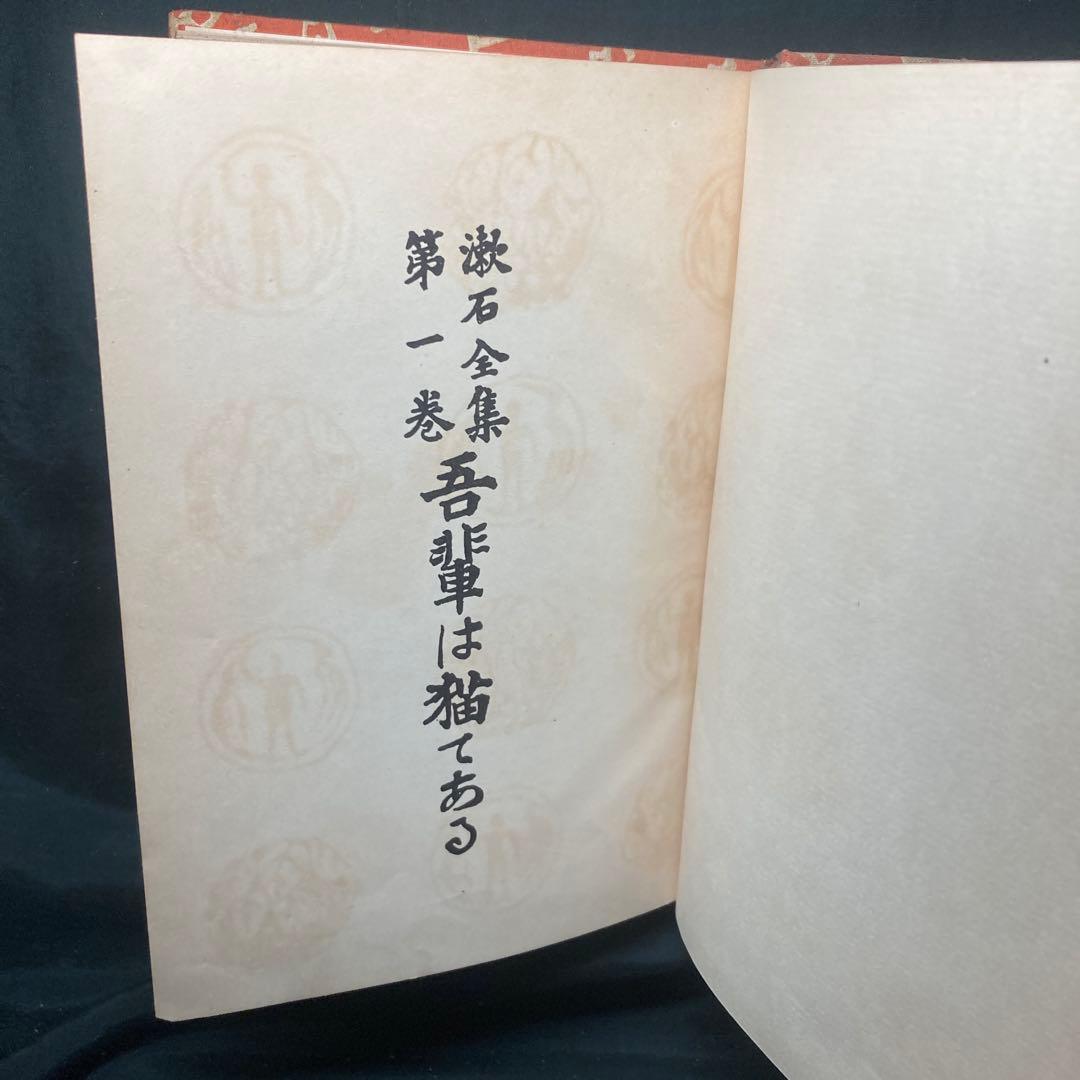 漱石全集
第一巻
吾輩は猫てある